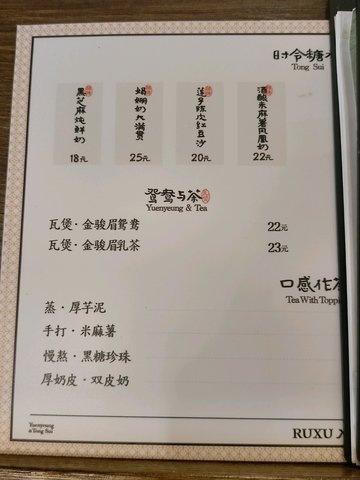 时令糖水
Tong Sui
黑芝麻炖鲜奶
18元
娟姗奶大满贯
25元
莲乡陈皮红豆沙
20元
酒酿米麻薯凤凰奶
22元
鸳鸯与茶
Yuenyeung & Tea
瓦煲·金骏眉鸳鸯 22元
瓦煲·金骏眉乳茶 23元
口感作茶
Tea With Toppi
蒸·厚芋泥
手打·米麻薯
慢熬·黑糖珍珠
厚奶皮·双皮奶
Yuenyeung
& Tong Sui
RUXU